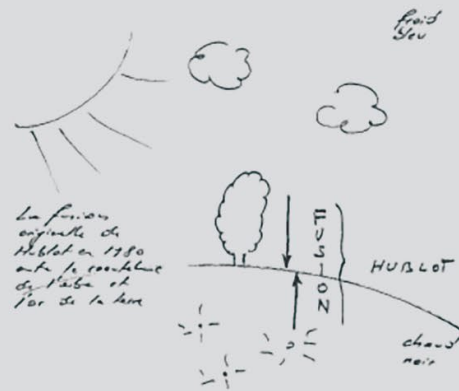 froid
La fusion
originelle de
Hublot en 1980
entre le caoutchouc
de l'arbre et
l'or de la terre
FUSION
HUBLOT
chaud
noir